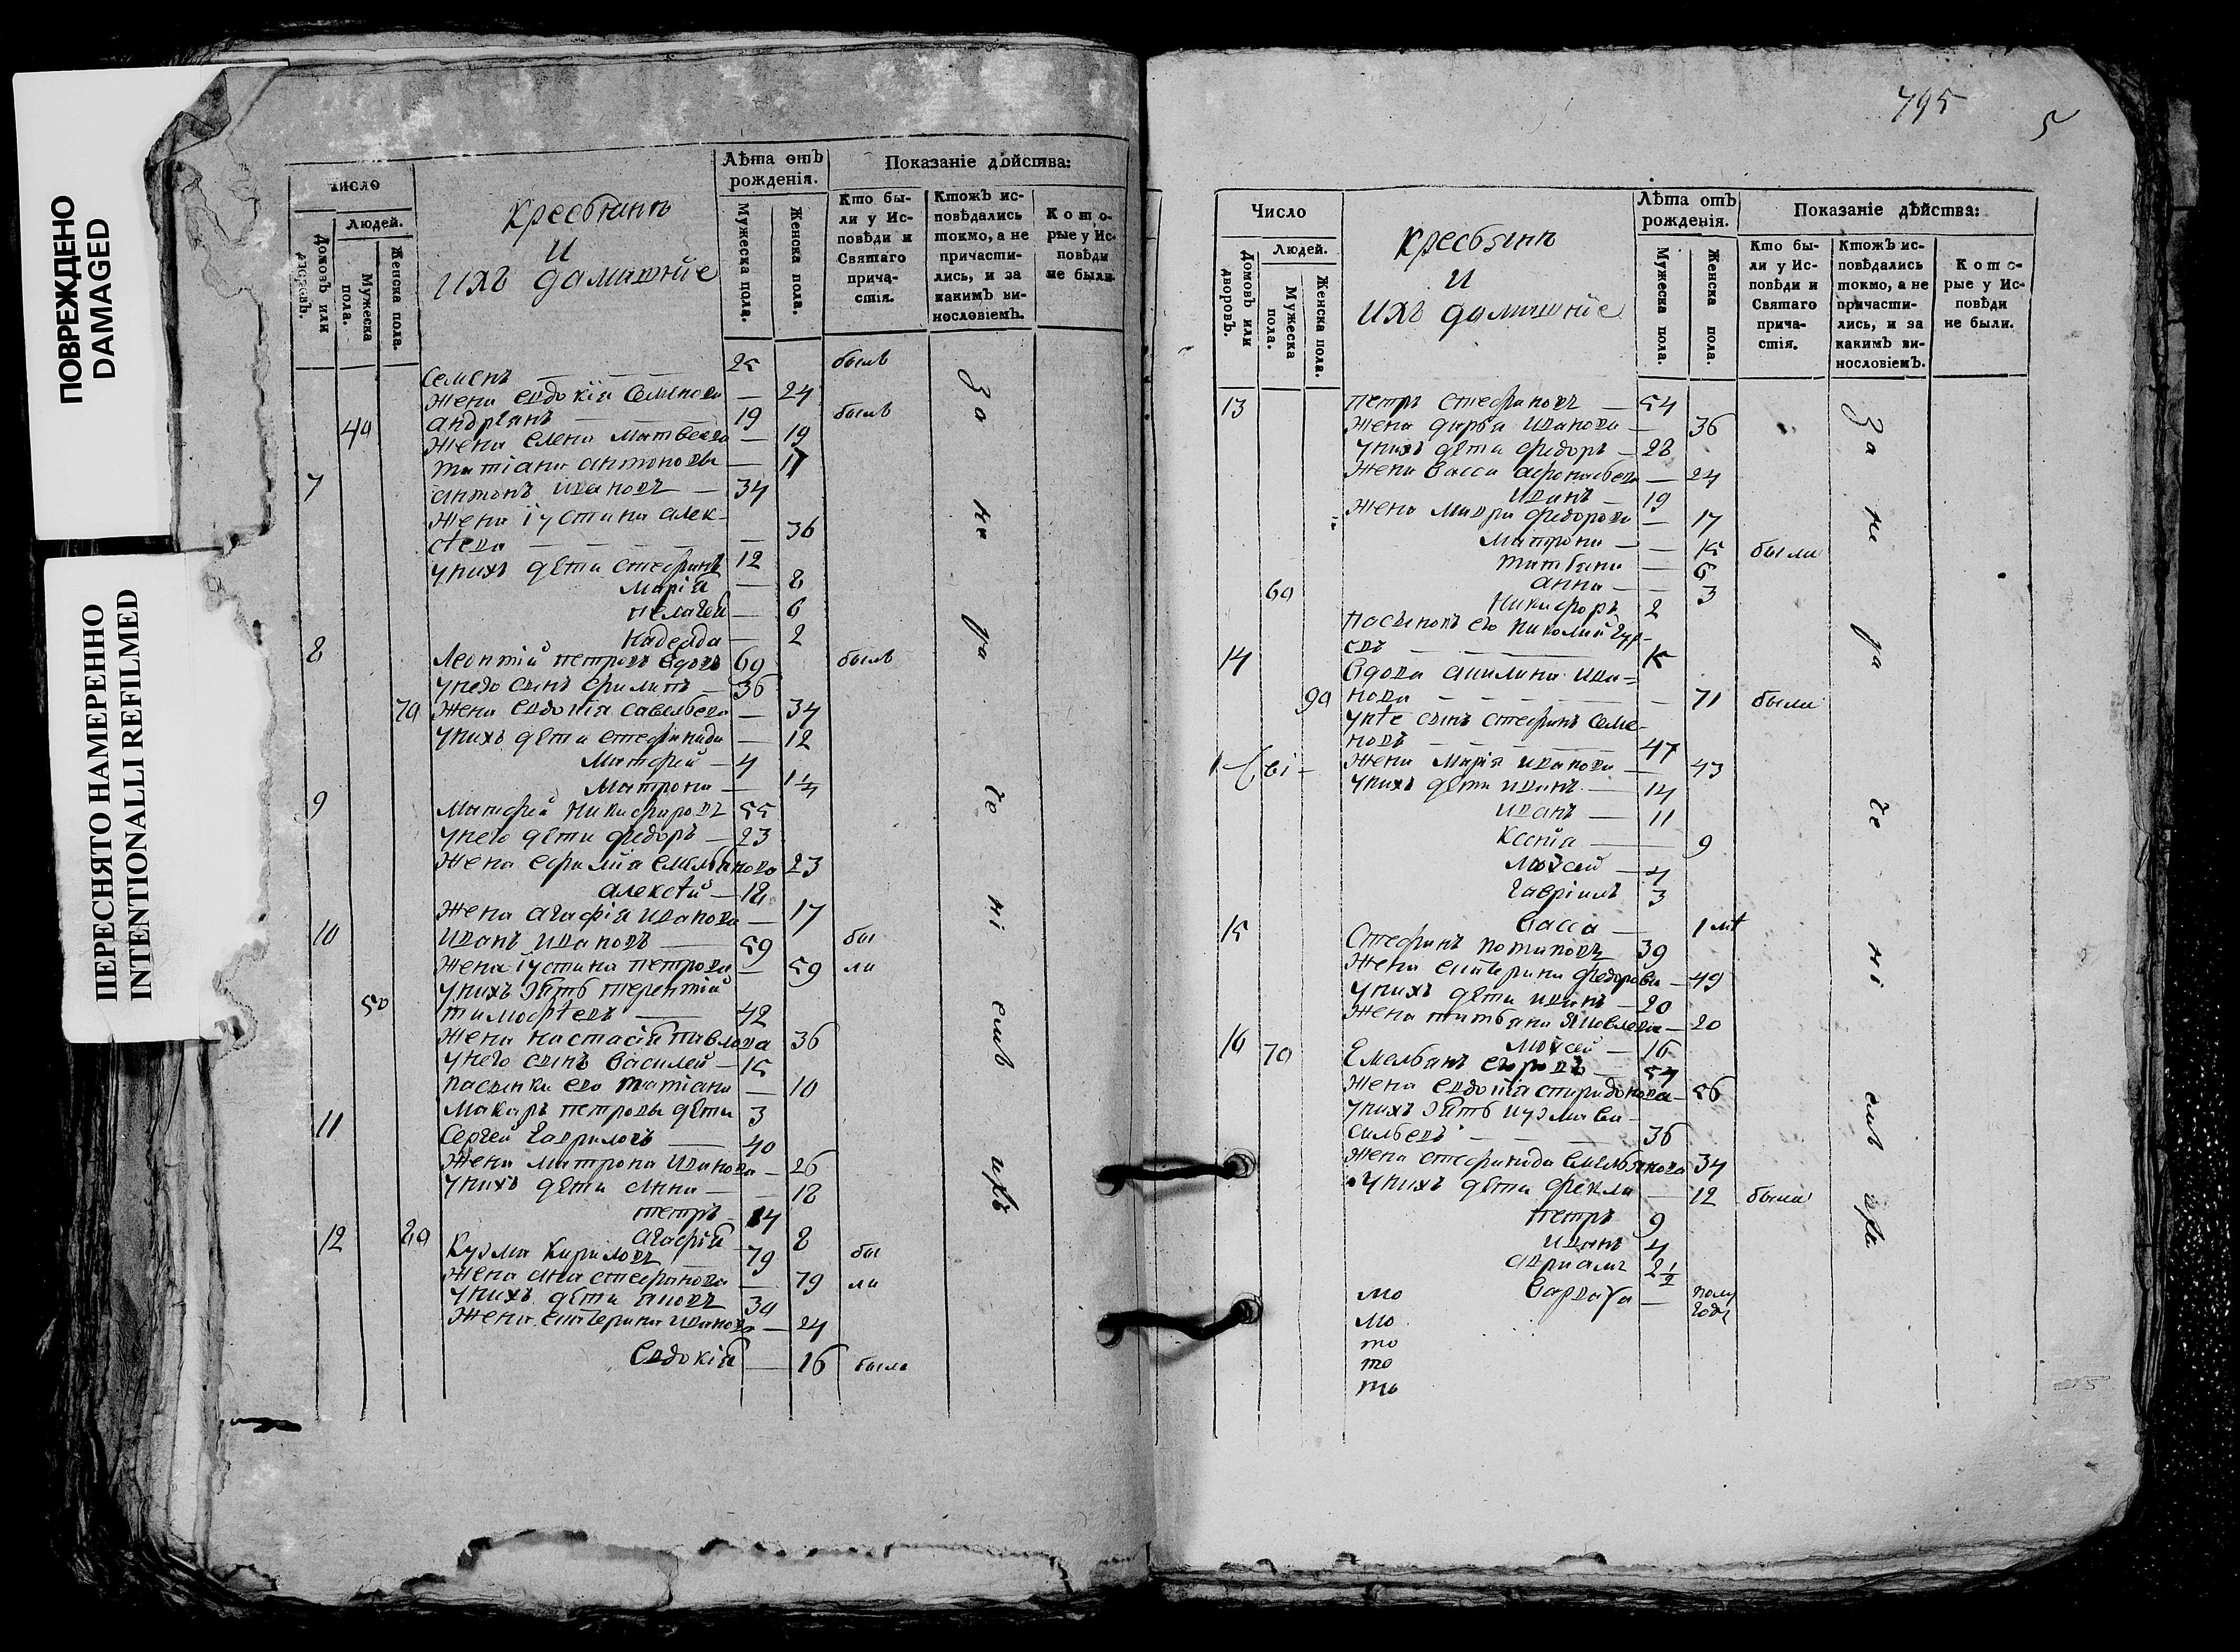 ПОВРЕЖДЕНО
DAMAGED
ПЕРЕСНЯТО НАМЕРЕННО
INTENTIONALLI REFILMED
Число
Людей.
Домовъ или дворовъ.
Мужеска пола.
Женска пола.
Крестьянъ
и
ихъ домашніе
Лѣта отъ
рожденія.
Мужеска пола.
Женска пола.
Показаніе дѣйства:
Кто бы-
ли у Ис-
повѣди и
Святаго
прича-
стія.
Ктожъ ис-
повѣдались
токмо, а не
причасти-
лись, и за
какимъ ви-
нословіемъ.
Кото-
рые у Ис-
повѣди
не были.
Семенъ — 25 былъ
Жена Евдокія Семенова — 24
40 Андріанъ — 19 былъ
Жена Елена Матвеева — 19
Татіана Антонова — 17
7 Антонъ Ивановъ — 34
Жена Іустина Алек-
сѣева — 36
У нихъ дѣти Стефанъ 12
Марія — 8
Пелагея — 6
Надежда — 2
8 Леонтій Петровъ вдовъ 69 былъ
У него сынъ Филипъ — 36
70 Жена Евдокія Савельева — 34
У нихъ дѣти Стефанида — 12
Матфей — 4
Матрона — 1 1/4
9 Матфей Никифоровъ 55
У него дѣти Федоръ — 23
Жена Ефимія Емельянова 23
Алексѣй — 18
Жена Агафія Иванова — 17
10 Иванъ Ивановъ — 59 бы
Жена Іустина Петрова — 59 ли
У нихъ зять Терентій
50 Тимофѣевъ — 42
Жена Настасія Павлова 36
У него сынъ Василей — 15
Пасынки его Татіана — 10
Макаръ Петровы дѣти 3
11 Сергей Гавриловъ — 40
Жена Матрона Иванова — 26
У нихъ дѣти Анна — 18
Петръ 14
80 Агафія — 8
12 Кузма Кириловъ 79 бы
Жена Анна Стефанова — 79 ли
У нихъ дѣти Яковъ 30
Жена Екатерина Иванова — 24
Евдокія — 16 была
За не ра че ні емъ ихъ
795
5
Число
Людей.
Домовъ или дворовъ.
Мужеска пола.
Женска пола.
Крестьянъ
и
ихъ домашніе
Лѣта отъ
рожденія.
Мужеска пола.
Женска пола.
Показаніе дѣйства:
Кто бы-
ли у Ис-
повѣди и
Святаго
прича-
стія.
Ктожъ ис-
повѣдались
токмо, а не
причасти-
лись, и за
какимъ ви-
нословіемъ.
Кото-
рые у Ис-
повѣди
не были.
13 Петръ Стефановъ — 54
Жена Дарья Иванова — 36
У нихъ дѣти Федоръ — 28
Жена Васса Афонасьева — 24
Иванъ — 19
Жена Мавра Федорова — 17
Матрона — 15 были
Татьяна — 6
Анна — 3
60 Никифоръ 2
Пасынокъ его Николай Гур-
евъ — 15
14 Вдова Акилина Ива-
90 нова — 71 была
У нее сынъ Стефанъ Семе-
новъ — 47
Жена Марія Иванова — 43
У нихъ дѣти Иванъ — 14
Иванъ — 11
Ксенія — 9
Мойсей — 4
Гавріилъ 3
Васса — 1 мѣ
15 Стефанъ Потаповъ 39
Жена Екатерина Федорова — 49
У нихъ дѣти Иванъ — 20
Жена Татьяна Яковлева — 20
Мойсей — 16
16 70 Емельянъ Егоровъ — 54
Жена Евдокія Спиридонова — 56
У нихъ зять Кузма Ва-
сильевъ — 36
Жена Стефанида Емельянова 34
У нихъ дѣти Фекла — 12 была
Петръ 9
Иванъ 4
Авраамъ 2 1/2
Варвара — полу
года
За не ра че ні емъ ихъ
мо
мо
то
то
то